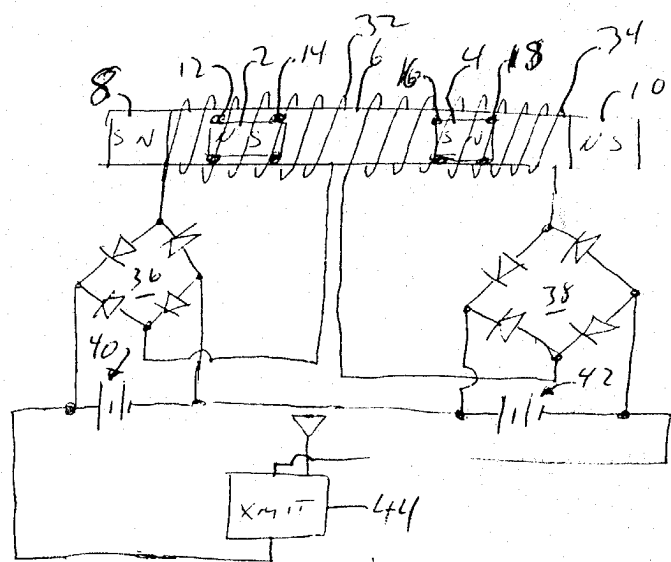 32 34
12 2 14 6 16 4 18
8 10
S N N S S N N S
36 38
40 42
XMIT 44